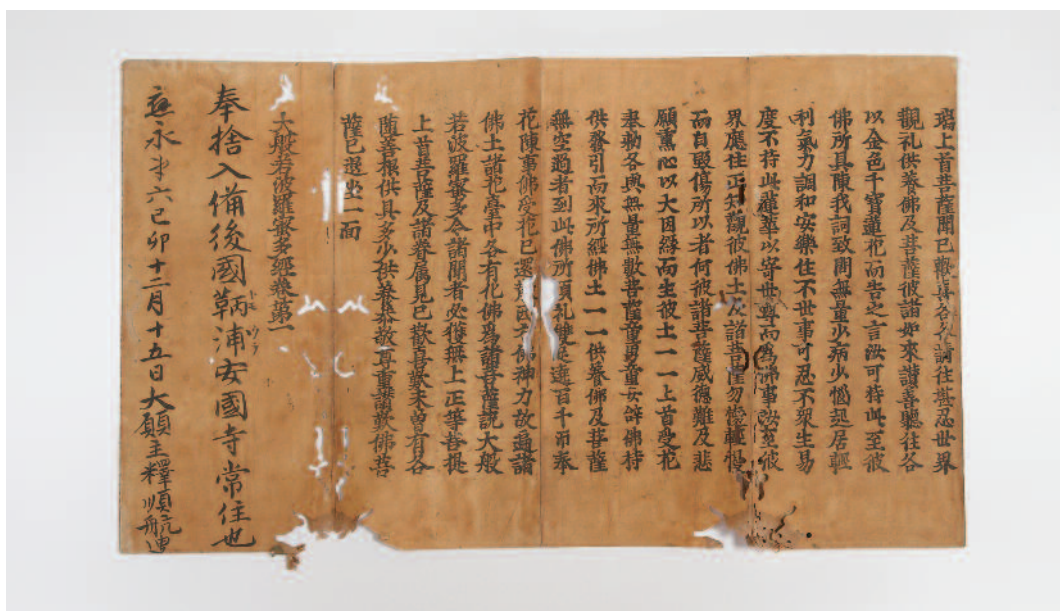 瑠上首菩薩聞已歡喜各各請往堪忍世界
觀礼供養佛及菩薩彼諸如來讃善聽往各
以金色千寶蓮花而告之言汝可持此至彼
佛所具陳我詞致問無量少病少惱起居輕
利氣力調和安樂住不世事可忍不衆生易
度不持此蓮華以寄世尊而爲佛事汝至彼
界應住正知觀彼佛土及諸菩薩勿懷輕慢
而自毀傷所以者何彼諸菩薩威德難及悲
願熏心以大因緣而生彼土一一上首受花
奉勑各與無量無數菩薩童男童女辞佛持
供發引而來所經佛土一一供養佛及菩薩
無空過者到此佛所頂礼雙足遶百千帀奉
花陳事佛受花已還佛神力故遍諸
佛土諸花臺中各有化佛爲諸菩薩説大般
若波羅蜜多令諸聞者必獲無上正等菩提
上首菩薩及諸眷属見已歡喜歎未曽有各
隨善根供具多少供養恭敬尊重讃歎佛菩
薩已退坐一面
大般若波羅蜜多經卷第一
奉捨入備後國鞆浦安國寺常住也
トモノウラ
應永六己卯十二月十五日大願主釋順航